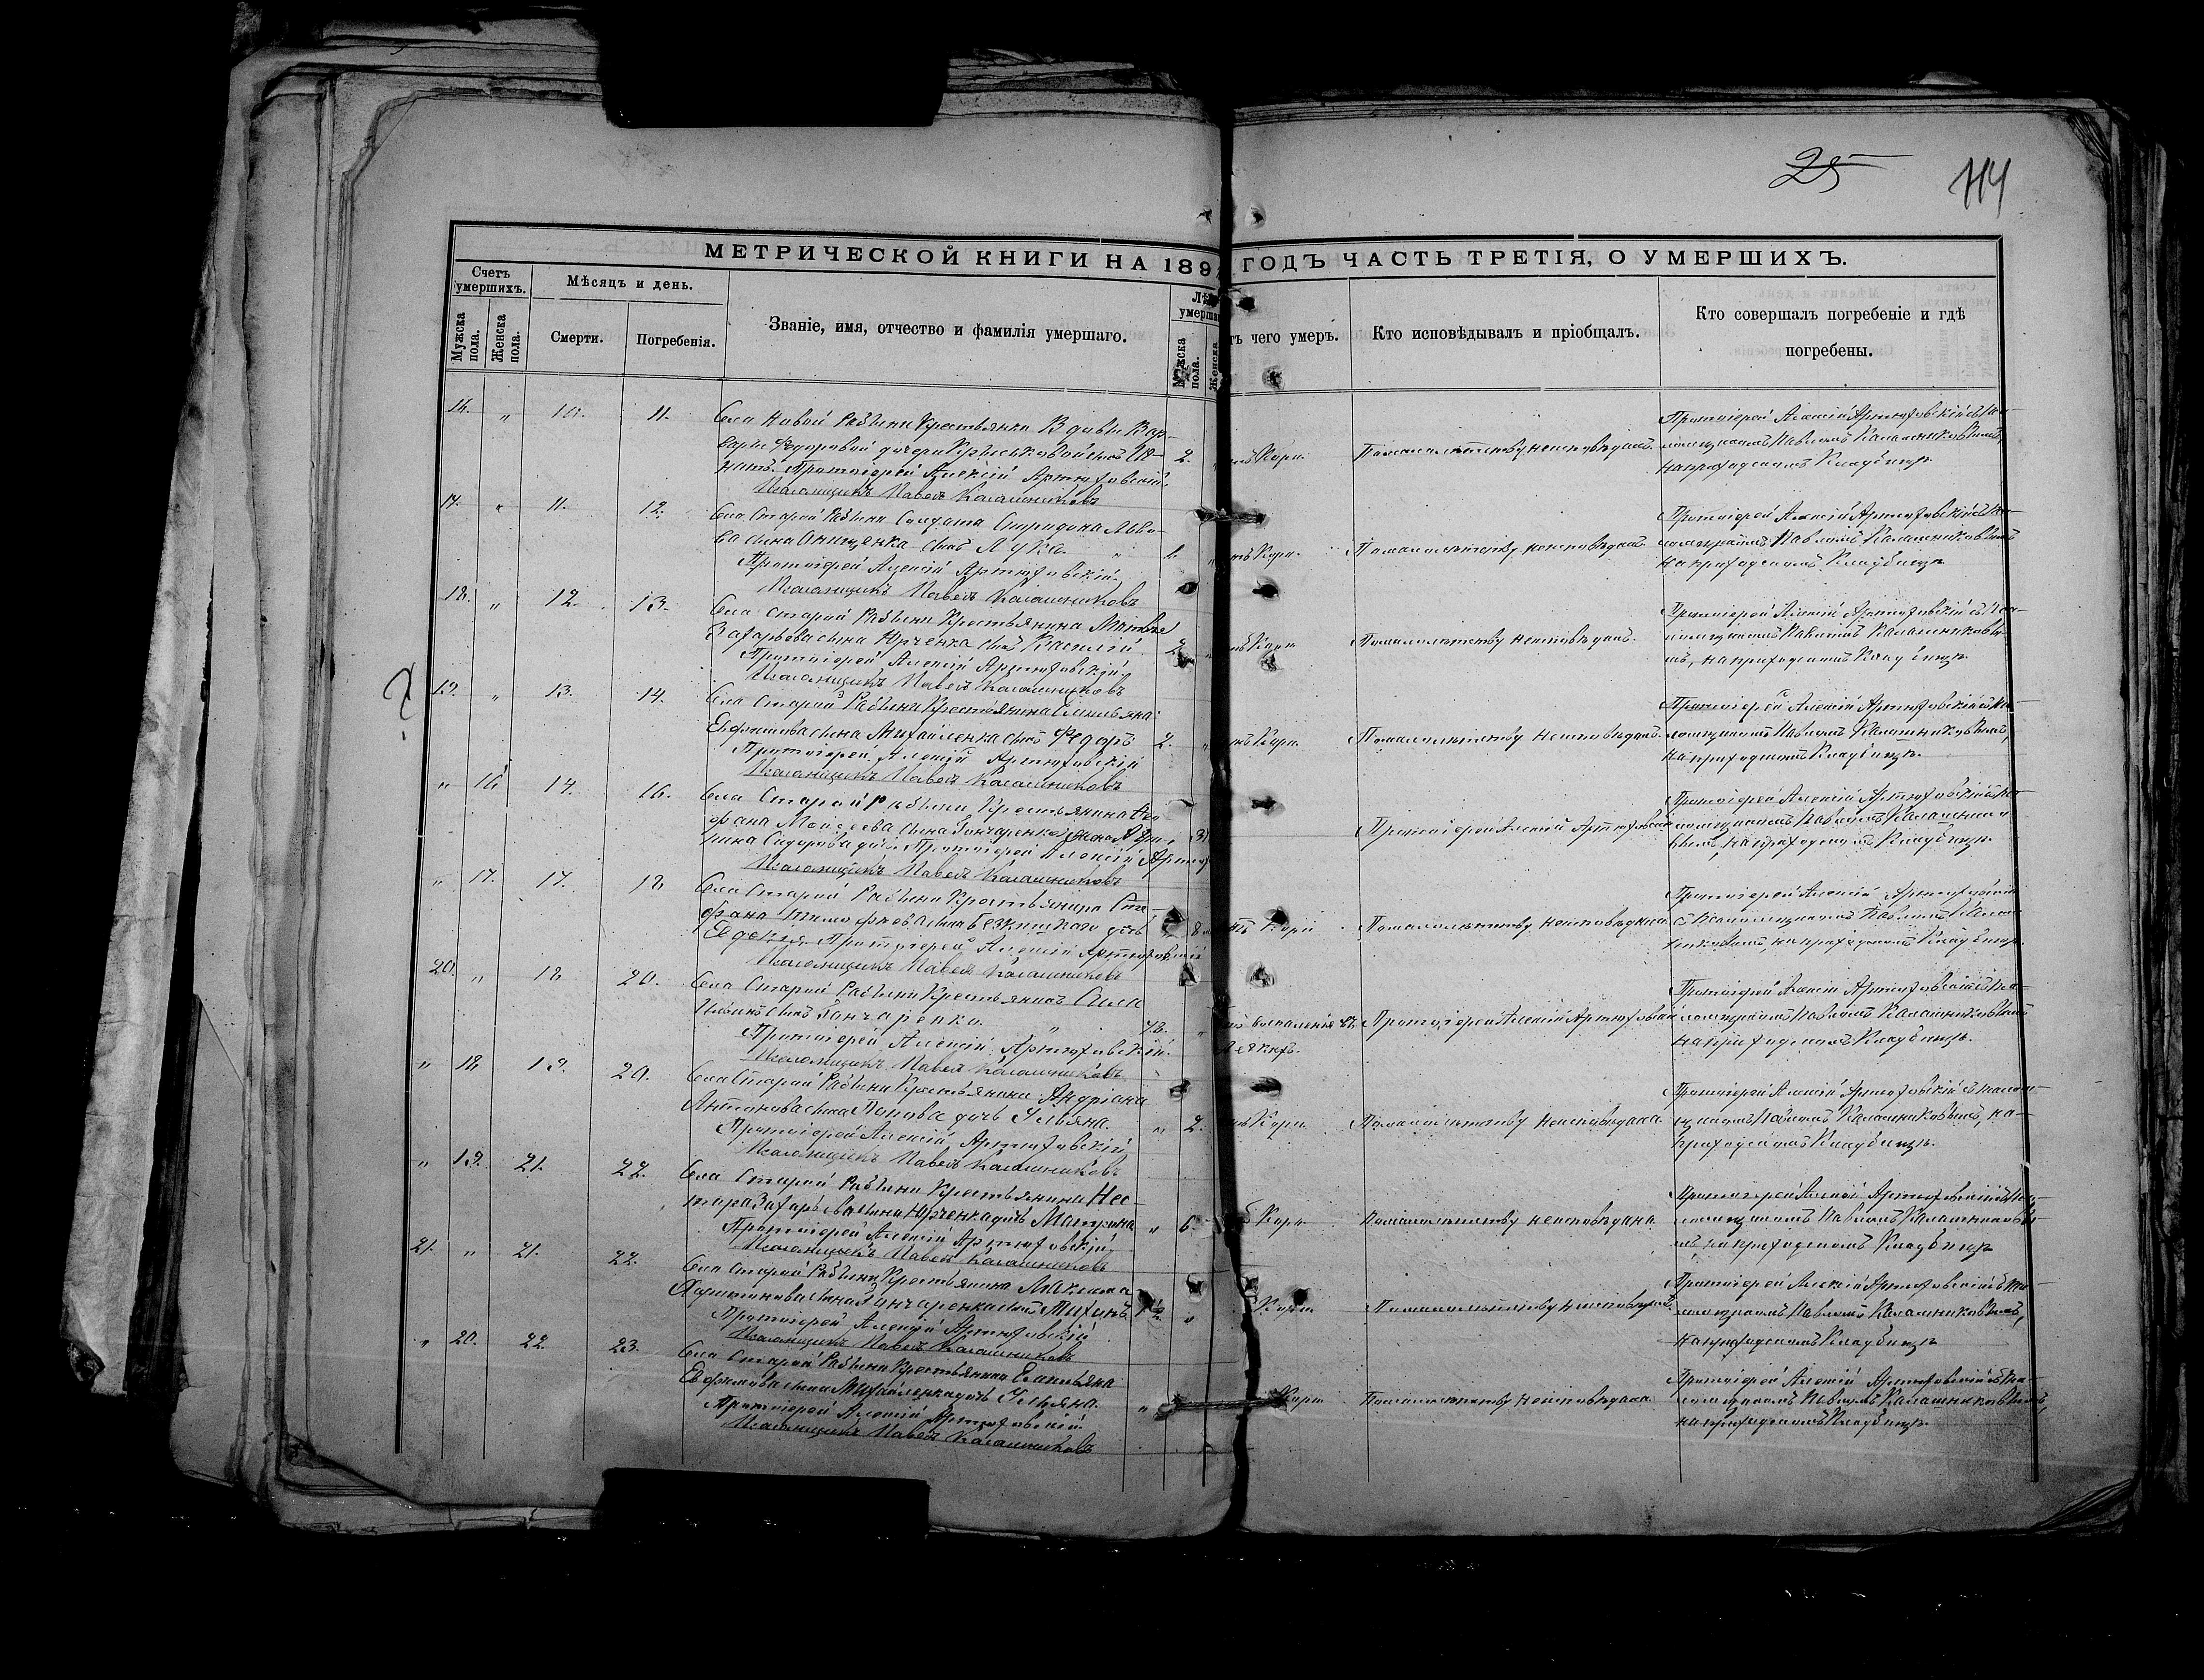 25
114
МЕТРИЧЕСКОЙ КНИГИ НА 189 ГОДЪ ЧАСТЬ ТРЕТІЯ, О УМЕРШИХЪ.
Счетъ умершихъ.
Мѣсяцъ и день.
Званіе, имя, отчество и фамилія умершаго.
умерша
чего умеръ.
Кто исповѣдывалъ и пріобщалъ.
Кто совершалъ погребеніе и гдѣ
погребены.
Мужска пола.
Женска пола.
Смерти.
Погребенія.
Мужска пола.
Женска
16. " 10. 11. Села Новой Рябины Крестьянки Вдовы Вар-
вары Федоровой дочери сынъ Иг-
натъ. Протоіерей Алексій Артюховскій.
Псаломщикъ Павелъ Калашниковъ
2. Кори
По малолѣтству неисповѣданъ.
Протоіерей Алексій Артюховскій съ Пса-
ломщикомъ Павломъ Калашниковымъ,
на приходскомъ Кладбищѣ.
17. " 11. 12. Села Старой Рябины Солдата Спиридона Льво-
ва сына Онищенка сынъ Лука.
Протоіерей Алексій Артюховскій.
Псаломщикъ Павелъ Калашниковъ
Кори.
По малолѣтству неисповѣданъ.
Протоіерей Алексій Артюховскій съ Пса-
ломщикомъ Павломъ Калашниковымъ
на приходскомъ Кладбищѣ
18. " 12. 13. Села Старой Рябины Крестьянина Матвѣя
Захарьева сына Юрченка сынъ Василій
Протоіерей Алексій Артюховскій.
Псаломщикъ Павелъ Калашниковъ
2. Кори
По малолѣтству неисповѣданъ.
Протоіерей Алексій Артюховскій съ Пса-
ломщикомъ Павломъ Калашниковы-
мъ, на приходскомъ Кладбищѣ.
19. " 13. 14. Села Старой Рябины Крестьянина Емельяна
Евфимова сына Михайленка сынъ Федоръ
Протоіерей Алексій Артюховскій
Псаломщикъ Павелъ Калашниковъ
2. Кори.
По малолѣтству неисповѣданъ.
Протоіерей Алексій Артюховскій съ Пса-
ломщикомъ Павломъ Калашниковымъ,
на приходскомъ Кладбищѣ.
" 16 14. 16. Села Старой Рябины Крестьянина
Моисеева сына Гончаренка жена
Сидорова Протоіерей Алексій
Псаломщикъ Павелъ Калашниковъ
Протоіерей Алексій Артюховскій
Протоіерей Алексій Артюховскій съ Пса-
ломщикомъ Павломъ Калашнико-
вымъ, на приходскомъ Кладбищѣ.
" 17. 17. 18. Села Старой Рябины Крестьянина Сте-
фана Тимофѣева сына дочь
Евдокія. Протоіерей Алексій Артюховскій
Псаломщикъ Павелъ Калашниковъ
8 Кори
По малолѣтству неисповѣдана.
Протоіерей Алексій Артюховскій
съ Псаломщикомъ Павломъ Калаш-
никовымъ, на приходскомъ Кладбищѣ.
20. " 18. 20. Села Старой Рябины Крестьянинъ Сила
сынъ Гончаренко.
Протоіерей Алексій Артюховскій.
Псаломщикъ Павелъ Калашниковъ
воспаленія
легкихъ.
Протоіерей Алексій Артюховскій
Протоіерей Алексій Артюховскій съ Пса-
ломщикомъ Павломъ Калашниковымъ
на приходскомъ Кладбищѣ.
" 18 19. 20. Села Старой Рябины Крестьянина Андріана
Антонова сына Попова дочь Ульяна.
Протоіерей Алексій Артюховскій
Псаломщикъ Павелъ Калашниковъ
" 2. Кори
По малолѣтству неисповѣдана.
Протоіерей Алексій Артюховскій съ Псалом-
щикомъ Павломъ Калашниковымъ, на-
приходскомъ Кладбищѣ.
" 19. 21. 22. Села Старой Рябины Крестьянина Нес-
тора Захарьева сына Юрченка дочь Матрона
Протоіерей Алексій Артюховскій
Псаломщикъ Павелъ Калашниковъ
" 6. Кори
По малолѣтству неисповѣдана
Протоіерей Алексій Артюховскій съ Пса-
ломщикомъ Павломъ Калашниковы-
мъ, на приходскомъ Кладбищѣ
21. " 21. 22. Села Старой Рябины Крестьянина Максима
Харитонова сына Гончаренка сынъ Тихонъ
Протоіерей Алексій Артюховскій
Псаломщикъ Павелъ Калашниковъ
Кори
По малолѣтству неисповѣданъ.
Протоіерей Алексій Артюховскій съ Пса-
ломщикомъ Павломъ Калашниковымъ,
на приходскомъ Кладбищѣ
" 20. 22. 23. Села Старой Рябины Крестьянина Емельяна
Евфимова сына Михайленка дочь Ульяна.
Протоіерей Алексій Артюховскій
Псаломщикъ Павелъ Калашниковъ
Кори
По малолѣтству неисповѣдана
Протоіерей Алексій Артюховскій съ Пса-
ломщикомъ Павломъ Калашниковымъ,
на приходскомъ Кладбищѣ.